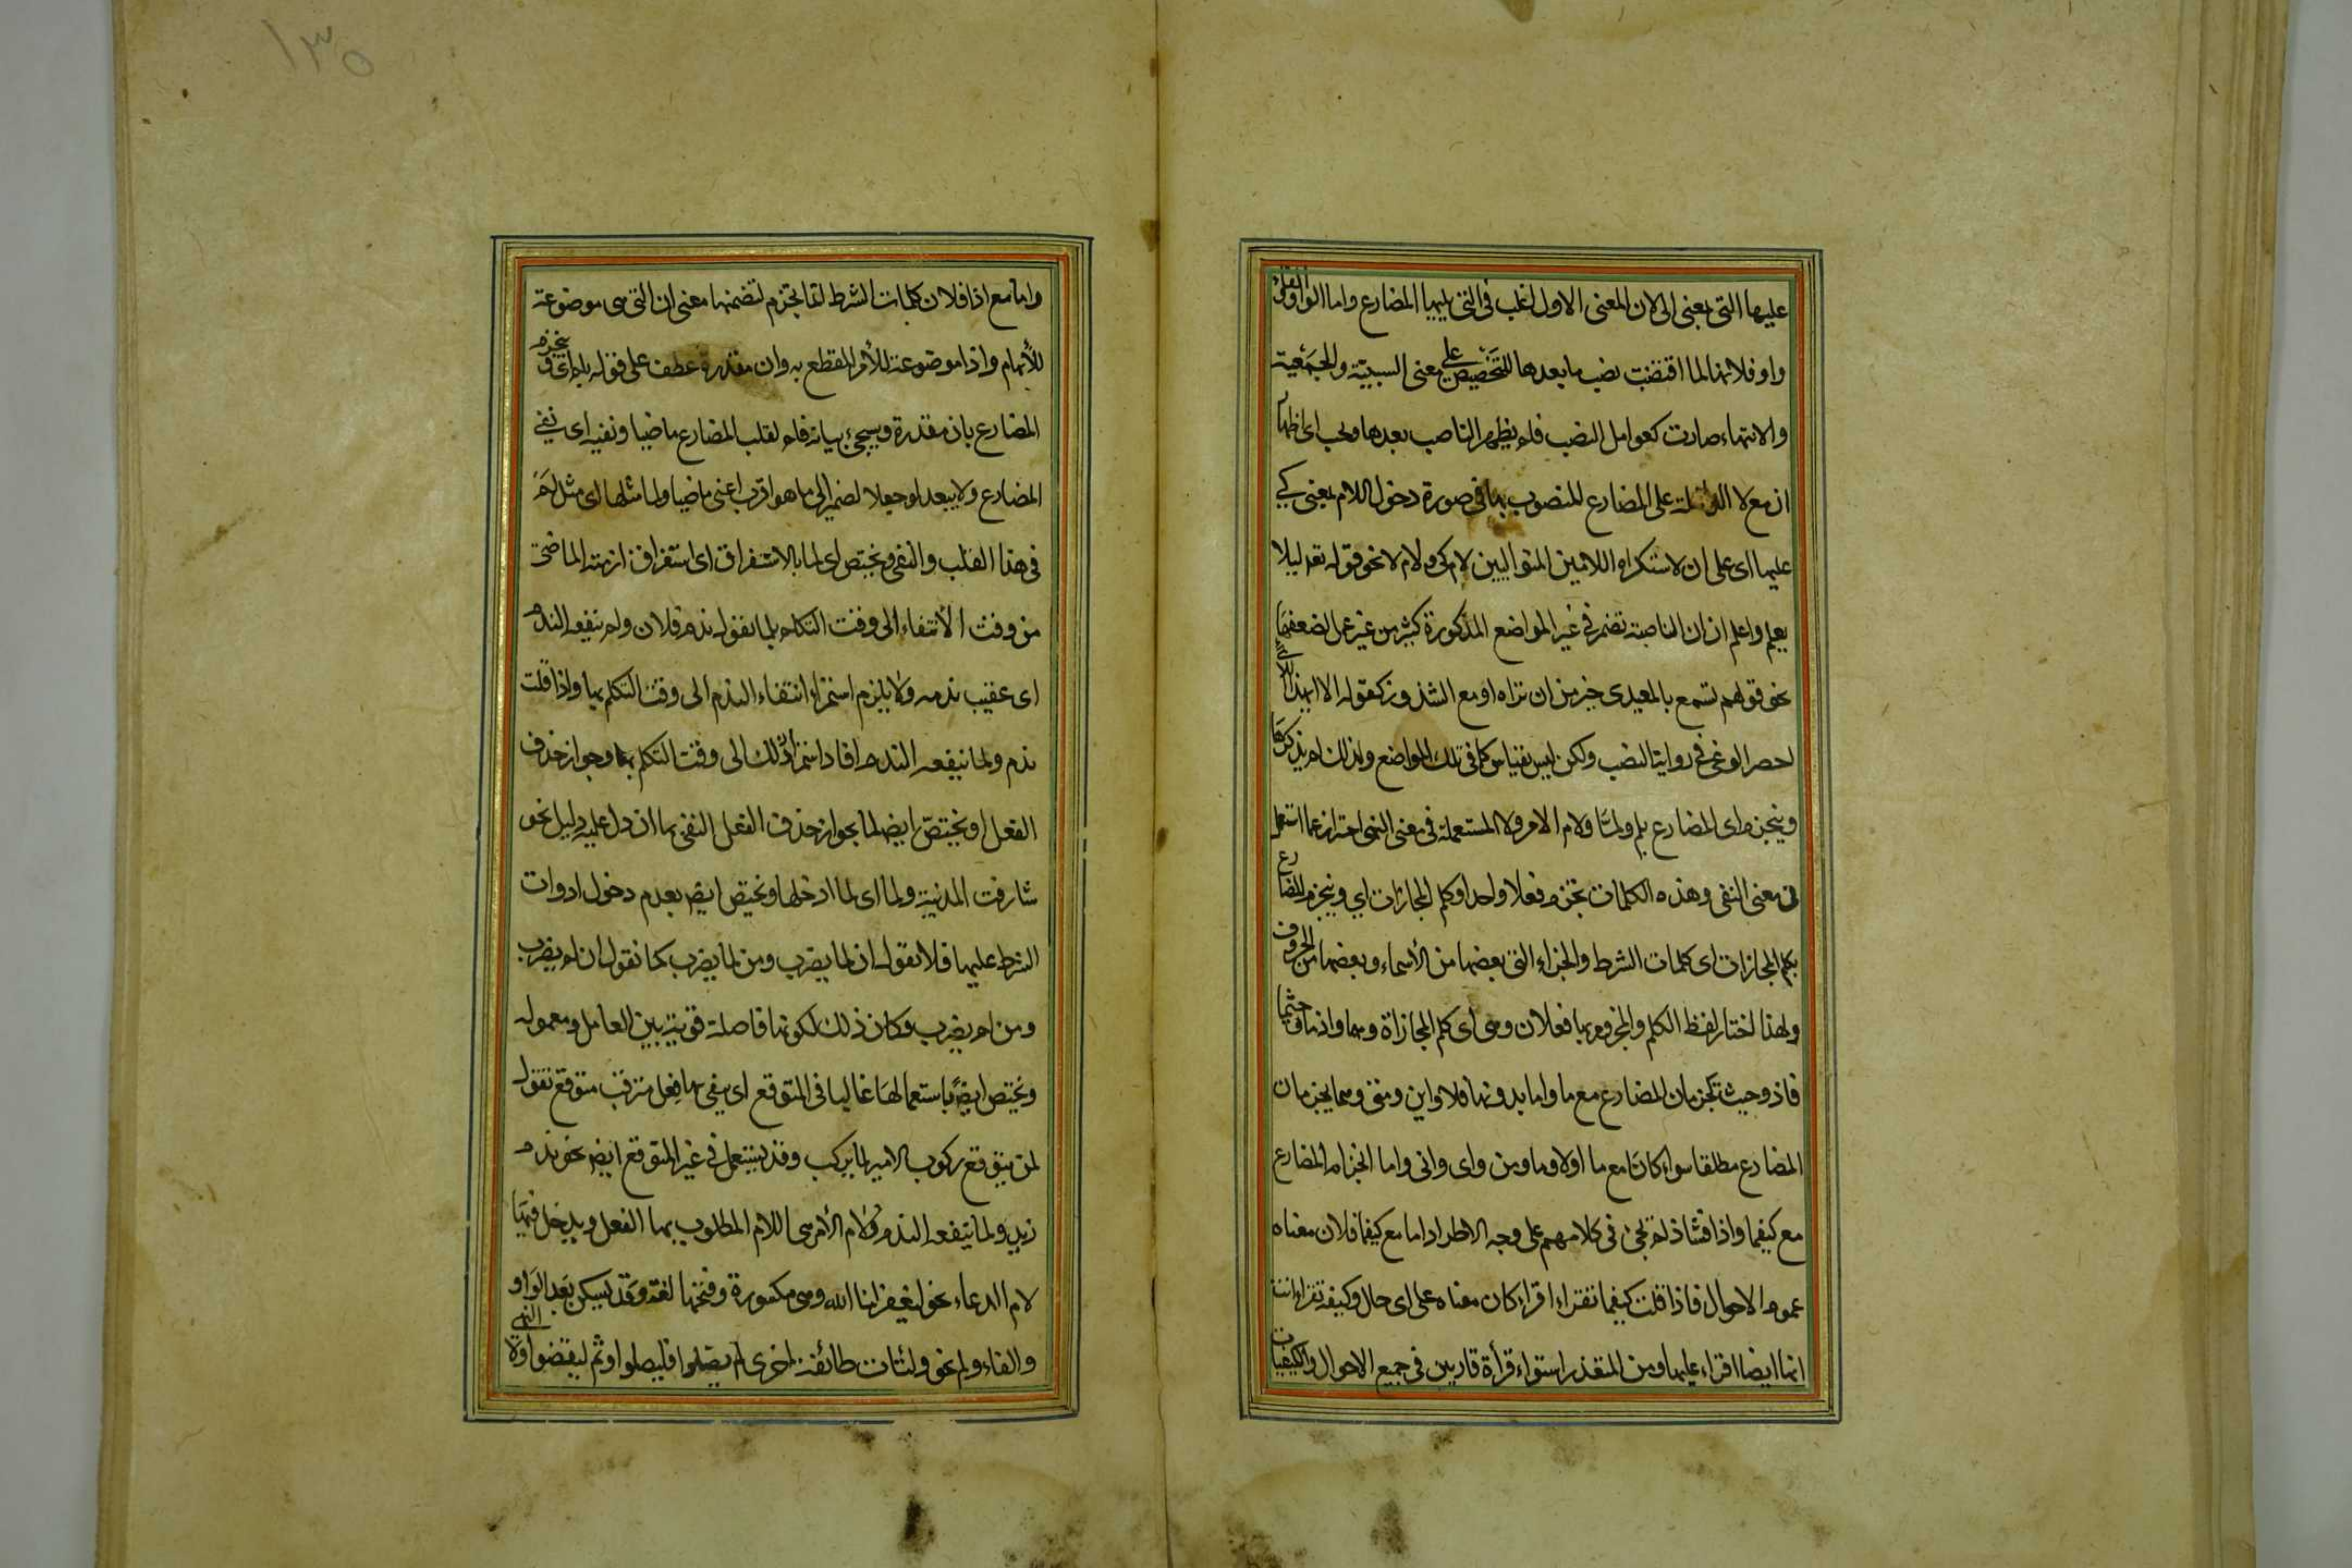 عليها التي بمعنى الى لان المعنى الاول اغلب في التي يليها المضارع واما الواو والفاء
واو فلانها لما اقتضت نصب ما بعدها للتخصيص على معنى السببية والجمعية
والانتهاء صارت كعوامل النصب فلم يظهر الناصب بعدها ويجب اى اظهار
ان مع لا الداخلة على المضارع المنصوب بها في صورة دخول اللام بمعنى كي
عليها اى على ان لاستكراه اللامين المتواليين لام كي ولام لا نحو قوله تعه ليلا
يعلم واعلم ان ان الناصبة تضمر في غير المواضع المذكورة كثيرا من غير عمل لضعفها
نحو قولهم تسمع بالمعيدى خير من ان تراه او مع الشذوذ كقوله الا ايهذا اللائمى
احضر الوغى في رواية النصب ولكن ليس بقياس كما في تلك المواضع ولذلك لم يذكرها
وينجزم اى المضارع بلم ولما ولام الامر ولا المستعملة في معنى النهى احتراز عما استعمل
في معنى النفى وهذه الكلمات تجزم فعلا واحدا وكلم المجازات اي وينجزم المضارع
بكلم المجازات اى كلمات الشرط والجزاء التى بعضها من الأسماء وبعضها من الحروف
ولهذا اختار لفظ الكلم والمجزوم بها فعلان وهى اى كلم المجازاة ومهما واذما وحيثما
فاذ وحيث تجزمان المضارع مع ما واما بدونها فلا واين ومتى وهما يجزمان
المضارع مطلقا سواء كانا مع ما اولا وما ومن واى وانى واما انجزام المضارع
مع كيفما واذا فشاذ لم تجئ في كلامهم على وجه الاطراد اما مع كيفما فلان معناه
عموم الاحوال فاذا قلت كيفما تقراء اقراء كان معناه على اى حال وكيفية تقراء انت
انا ايضا اقراء عليها ومن المتعذر استواء قرأة قاريين في جميع الاحوال والكيفيات
واما مع اذا فلان كلمات الشرط انما تجزم لتضمنها معنى ان التى هى موضوعة
للأبهام واذا موضوعة للأمر المقطع به وان مقدرة عطف على قوله بلم اى وينجزم
المضارع بان مقدرة وسيجئ بيانه فلم لقلب المضارع ماضيا ونفيه اى نفى
المضارع ولا يبعد لو جعلا لضمير الى ما هو اقرب اعنى ماضيا ولما مثلها اى مثل لم
في هذا القلب والنفى وتختص اى لما بالاستغراق اى استغراق ازمنة الماضى
من وقت الأنتفاء الى وقت التكلم بلما تقول ندم فلان ولم ينفعه الندم
اى عقيب ندمه ولا يلزم استمرار انتفاء الندم الى وقت التكلم بها واذا قلت
ندم ولما ينفعه الندم افاد استمرار ذلك الى وقت التكلم بها وجواز حذف
الفعل او تختص ايضا لما بجواز حذف الفعل النفى بها ان دل عليه دليل نحو
شارفت المدينة ولما اى لما ادخلها وتختص ايضا بعدم دخول ادوات
الشرط عليها فلا تقول ان لما يضرب ومن لما يضرب كما تقول ان لم يضرب
ومن لم يضرب وكان ذلك لكونها فاصلة قوية بين العامل ومعموله
وتختص ايضا باستعمالها غالبا في المتوقع اى ينفى بها فعل مترقب متوقع تقول
لمن يتوقع ركوب الامير لما يركب وقد يستعمل في غير المتوقع ايضا نحو ندم
زيد ولما ينفعه الندم ولام الأمر هى اللام المطلوب بها الفعل ويدخل فيها
لام الدعاء نحو ليغفر لنا الله وهى مكسورة وفتحها لغة وقد يسكن بعد الواو
والفاء وثم نحو ولتات طائفة اخرى لم يصلوا فليصلوا وثم ليقضوا ولا النهى